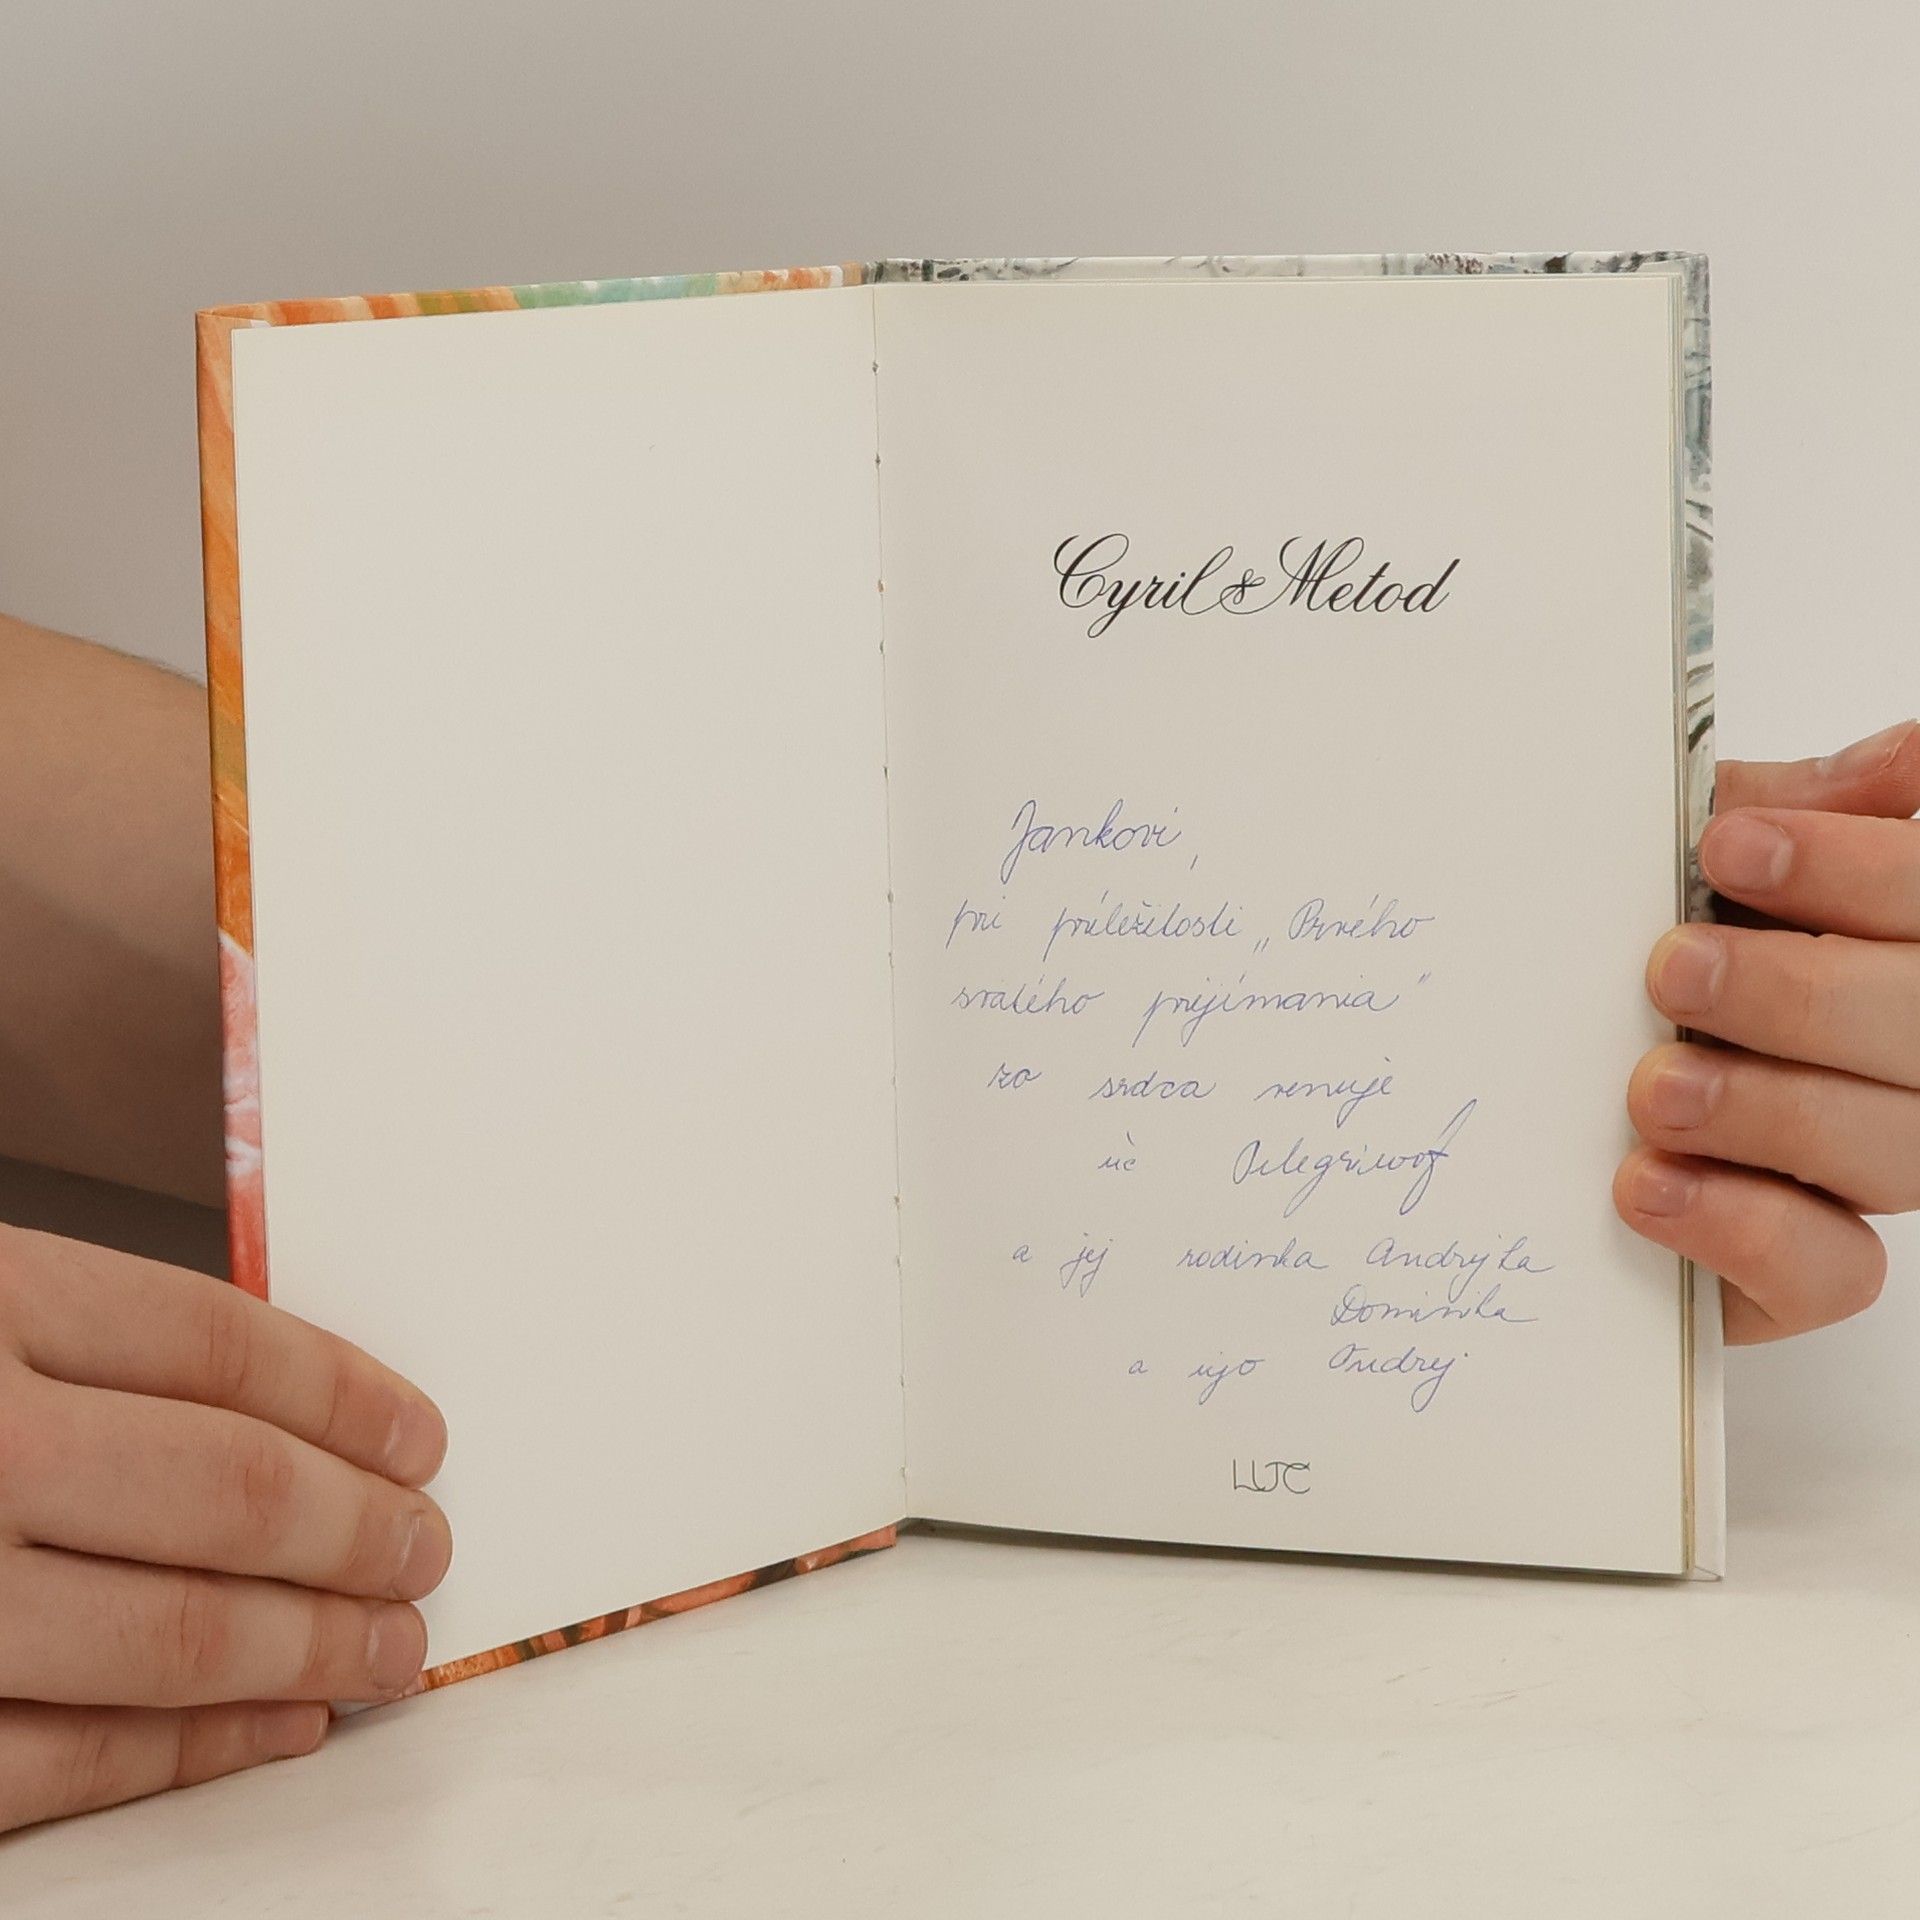 Cyril & Metod
Jankovi,
pri príležitosti „Prvého
svätého prijímania"
zo srdca venuje
uč
a jej rodinka Andrejka
Dominika
a ujo Andrej
LÚČ